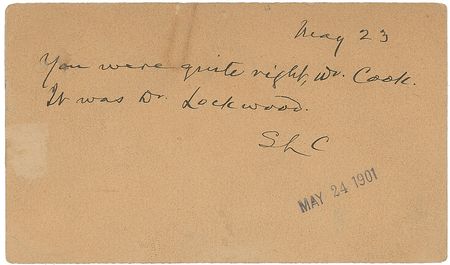 May 23
You were quite right, Dr. Cook.
It was Dr. Lockwood.
SLC
MAY 24 1901